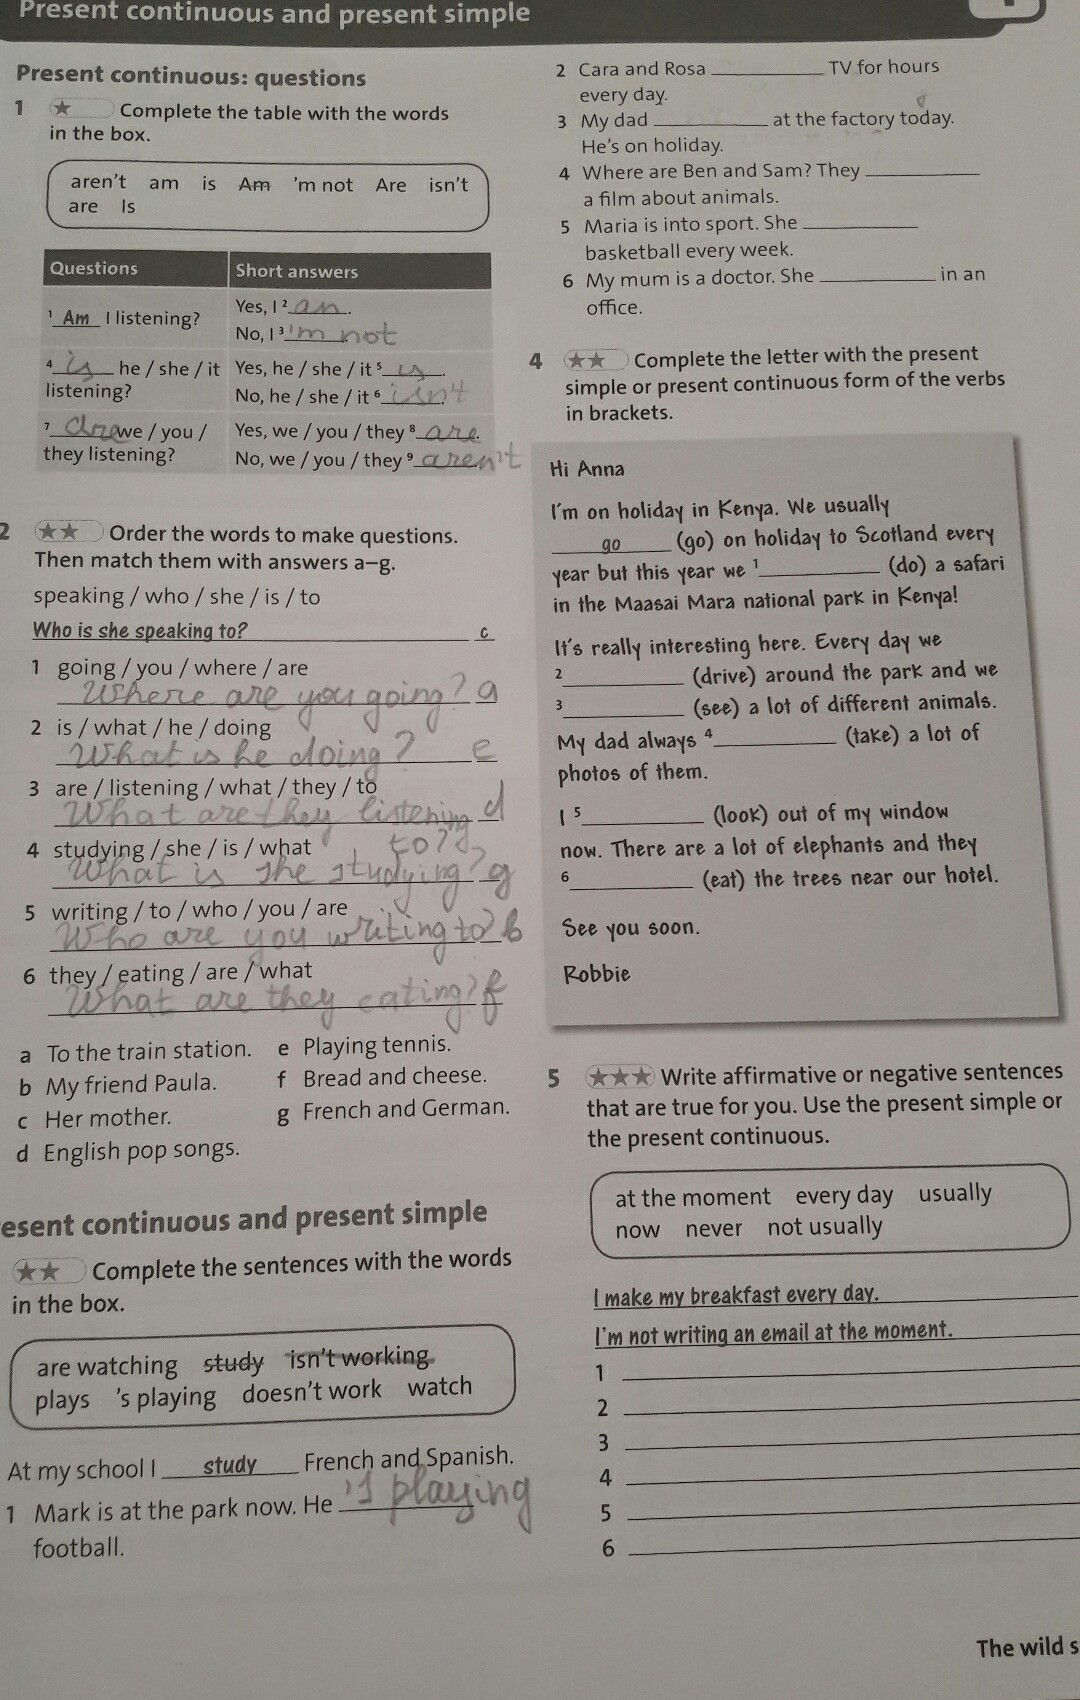 Present continuous and present simple
Present continuous: questions
1 ★ Complete the table with the words
in the box.
aren't am is Am 'm not Are isn't
are Is
Questions Short answers
¹ Am I listening? Yes, I ² am.
No, I ³ 'm not
⁴ is he / she / it Yes, he / she / it ⁵ is.
listening? No, he / she / it ⁶ isn't
⁷ are we / you / Yes, we / you / they ⁸ are.
they listening? No, we / you / they ⁹ aren't
2 ★★ Order the words to make questions.
Then match them with answers a–g.
speaking / who / she / is / to
Who is she speaking to? c
1 going / you / where / are
Where are you going? a
2 is / what / he / doing
What is he doing? e
3 are / listening / what / they / to
What are they listening d
to?
4 studying / she / is / what
What is she studying? g
5 writing / to / who / you / are
Who are you writing to? b
6 they / eating / are / what
What are they eating? f
a To the train station. e Playing tennis.
b My friend Paula. f Bread and cheese.
c Her mother. g French and German.
d English pop songs.
esent continuous and present simple
★★ Complete the sentences with the words
in the box.
are watching study isn't working
plays 's playing doesn't work watch
At my school I study French and Spanish.
1 Mark is at the park now. He 's playing
football.
2 Cara and Rosa ________ TV for hours
every day.
3 My dad ________ at the factory today.
He's on holiday.
4 Where are Ben and Sam? They ________
a film about animals.
5 Maria is into sport. She ________
basketball every week.
6 My mum is a doctor. She ________ in an
office.
4 ★★ Complete the letter with the present
simple or present continuous form of the verbs
in brackets.
Hi Anna
I'm on holiday in Kenya. We usually
go (go) on holiday to Scotland every
year but this year we ¹________ (do) a safari
in the Maasai Mara national park in Kenya!
It's really interesting here. Every day we
²________ (drive) around the park and we
³________ (see) a lot of different animals.
My dad always ⁴________ (take) a lot of
photos of them.
I ⁵________ (look) out of my window
now. There are a lot of elephants and they
⁶________ (eat) the trees near our hotel.
See you soon.
Robbie
5 ★★★ Write affirmative or negative sentences
that are true for you. Use the present simple or
the present continuous.
at the moment every day usually
now never not usually
I make my breakfast every day.
I'm not writing an email at the moment.
1
2
3
4
5
6
The wild s